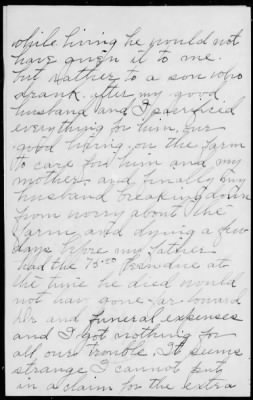 while living he would not
have given it to me.
but rather to a son who
drank. after my good
husband and I sacrificed
everything for him, our
good living, on the farm
to care for him and my
mother, and finally my
husband breaking down
from worry about the
farm, and dying a few
days before my father.
had the 75.00 been due at
the time he died would
not hav gone far toward
Dr and funeral expenses
and I got nothing for
all our trouble. It seems
strange I cannot put
in a claim for the extra